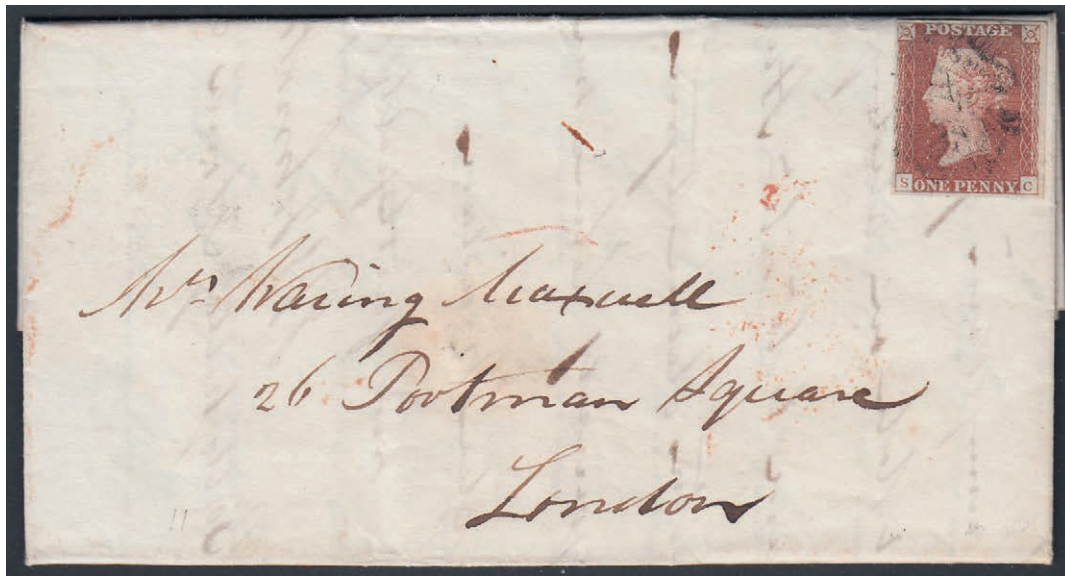 POSTAGE
S ONE PENNY C
Mrs Waring Maxwell
26 Portman Square
London